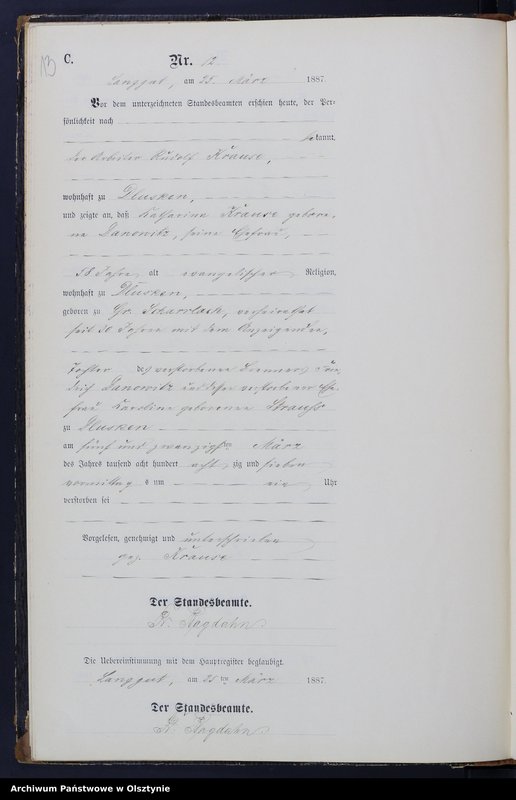 13
C.
Nr. 12.
Langgut, am 25. März 1887.
Vor dem unterzeichneten Standesbeamten erschien heute, der Per-
sönlichkeit nach
bekannt,
der Arbeiter Rudolf Krause,
wohnhaft zu Dlusken,
und zeigte an, daß Katharina Krause gebore,
ne Danowitz, seine Ehefrau,
58 Jahre alt evangelischer Religion,
wohnhaft zu Dlusken,
geboren zu Gr. verheirathet
seit 30 Jahren mit dem Anzeigenden,
Tochter des verstorbenen Frie
drich Danowitz und dessen verstorbener Ehe-
frau Karoline geborenen Strauss
zu Dlusken
am fünf und zwanzigsten März
des Jahres tausend acht hundert acht zig und sieben
vormittags um ein Uhr
verstorben sei
Vorgelesen, genehmigt und unterschrieben
gez. Krause
Der Standesbeamte.
Die Uebereinstimmung mit dem Hauptregister beglaubigt.
Langgut, am 25ten März 1887.
Der Standesbeamte.
Archiwum Państwowe w Olsztynie